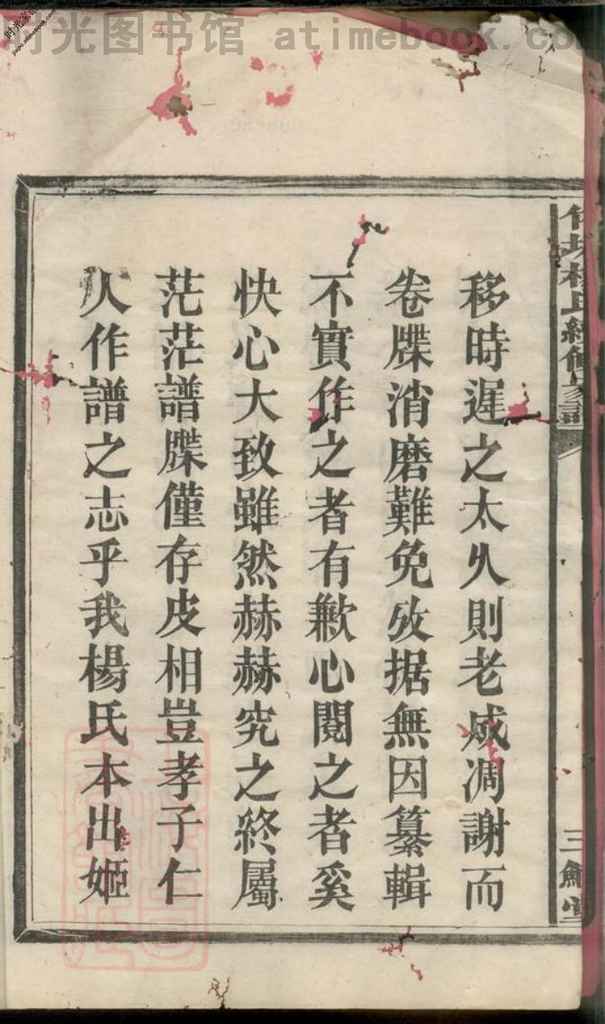 时光图书馆 atimebook.com
楊氏續修家譜
三鱣堂
移時遲之太久則老成凋謝而
卷牒消磨難免攷据無因纂輯
不實作之者有歉心閱之者奚
快心大致雖然赫赫究之終屬
茫茫譜牒僅存皮相豈孝子仁
人作譜之志乎我楊氏本出姬